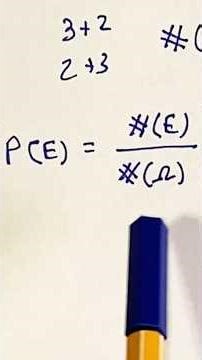 3+2 #(
2+3
P(E) = #(E) / #(Ω)